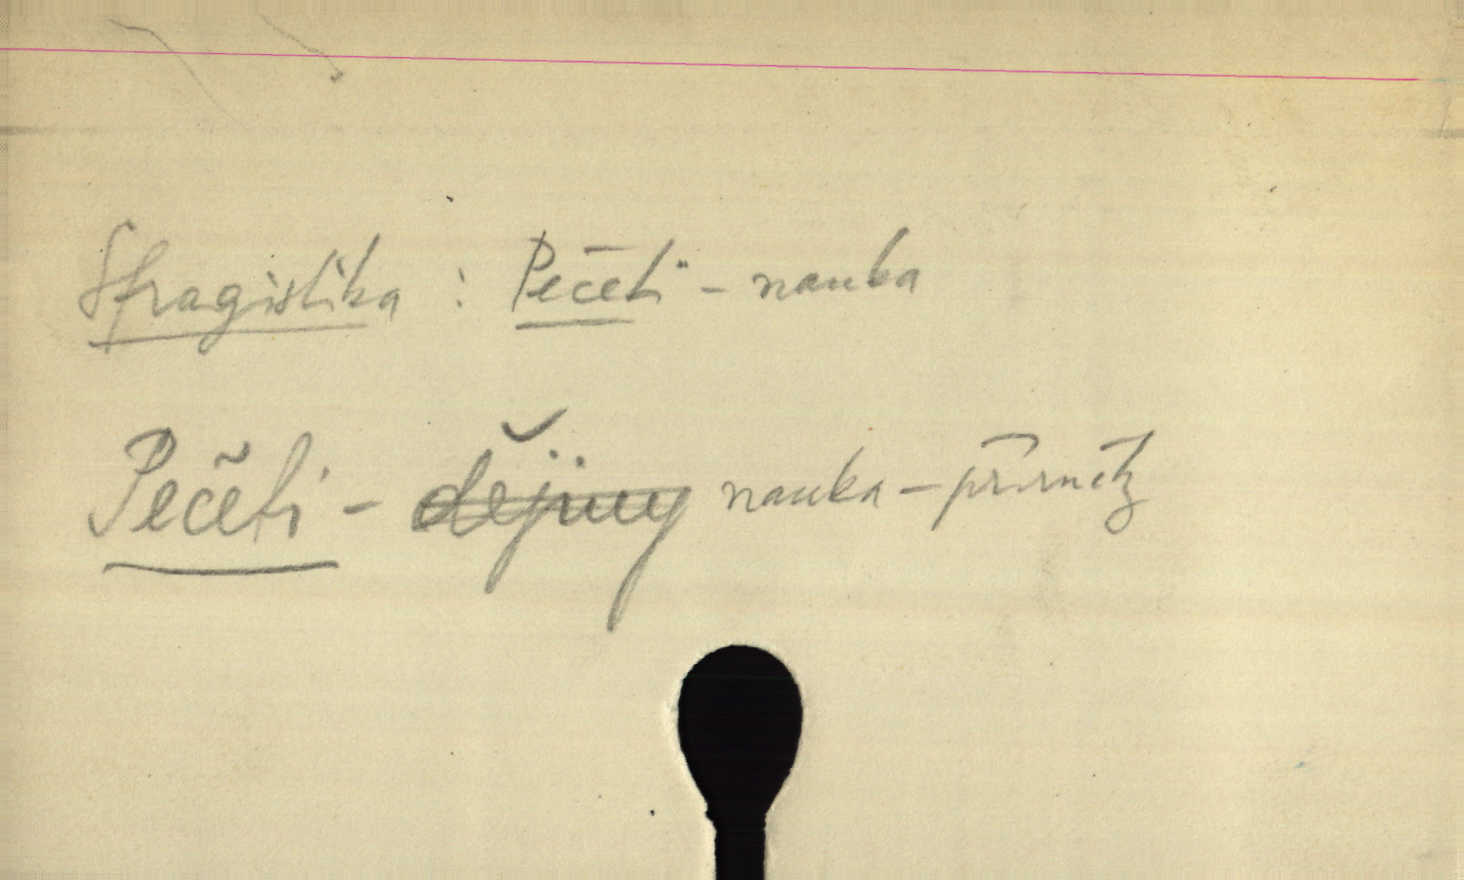 Sfragistika : Pečeti - nauka
Pečeti - dějiny nauka - příručky